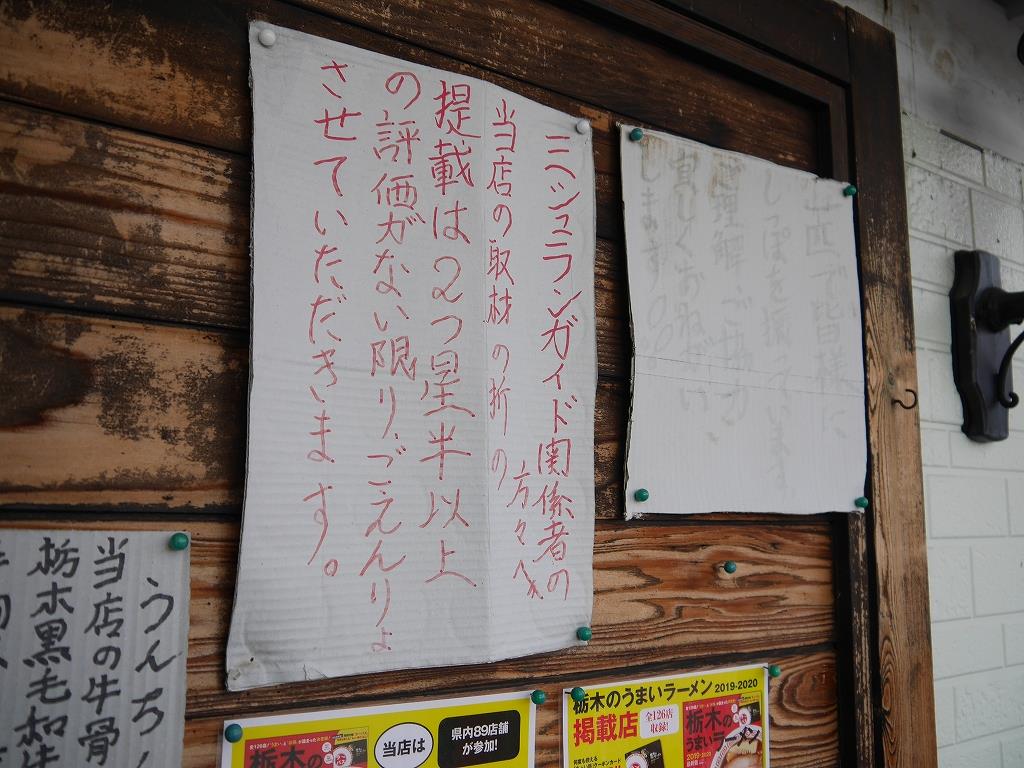 ミシュランガイド関係者の
方々へ
当店の取材の折の
提載は2つ星半以上
の評価がない限りごえんりょ
させていただきます。
匹で皆様に
しっぽを振っています
理解ご協力
宜しくお願い
します
うんち
当店の牛骨
栃木黒毛和牛
栃木の
当店は
県内89店舗
が参加!
栃木のうまいラーメン 2019-2020
掲載店
全126店
収録!
栃木の
うまいラーメン
2019-2020